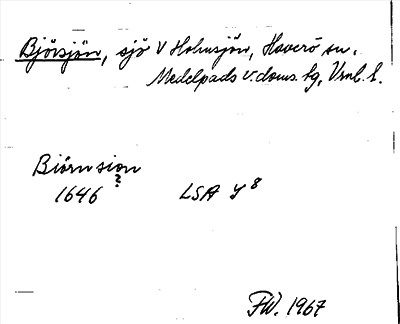 Björsjön, sjö V Holmsjön, Haverö sn.
Medelpads v:a doms. tg, Vrnl. l.
Biörnsion
?
1646 LSA Y 8
FW. 1967